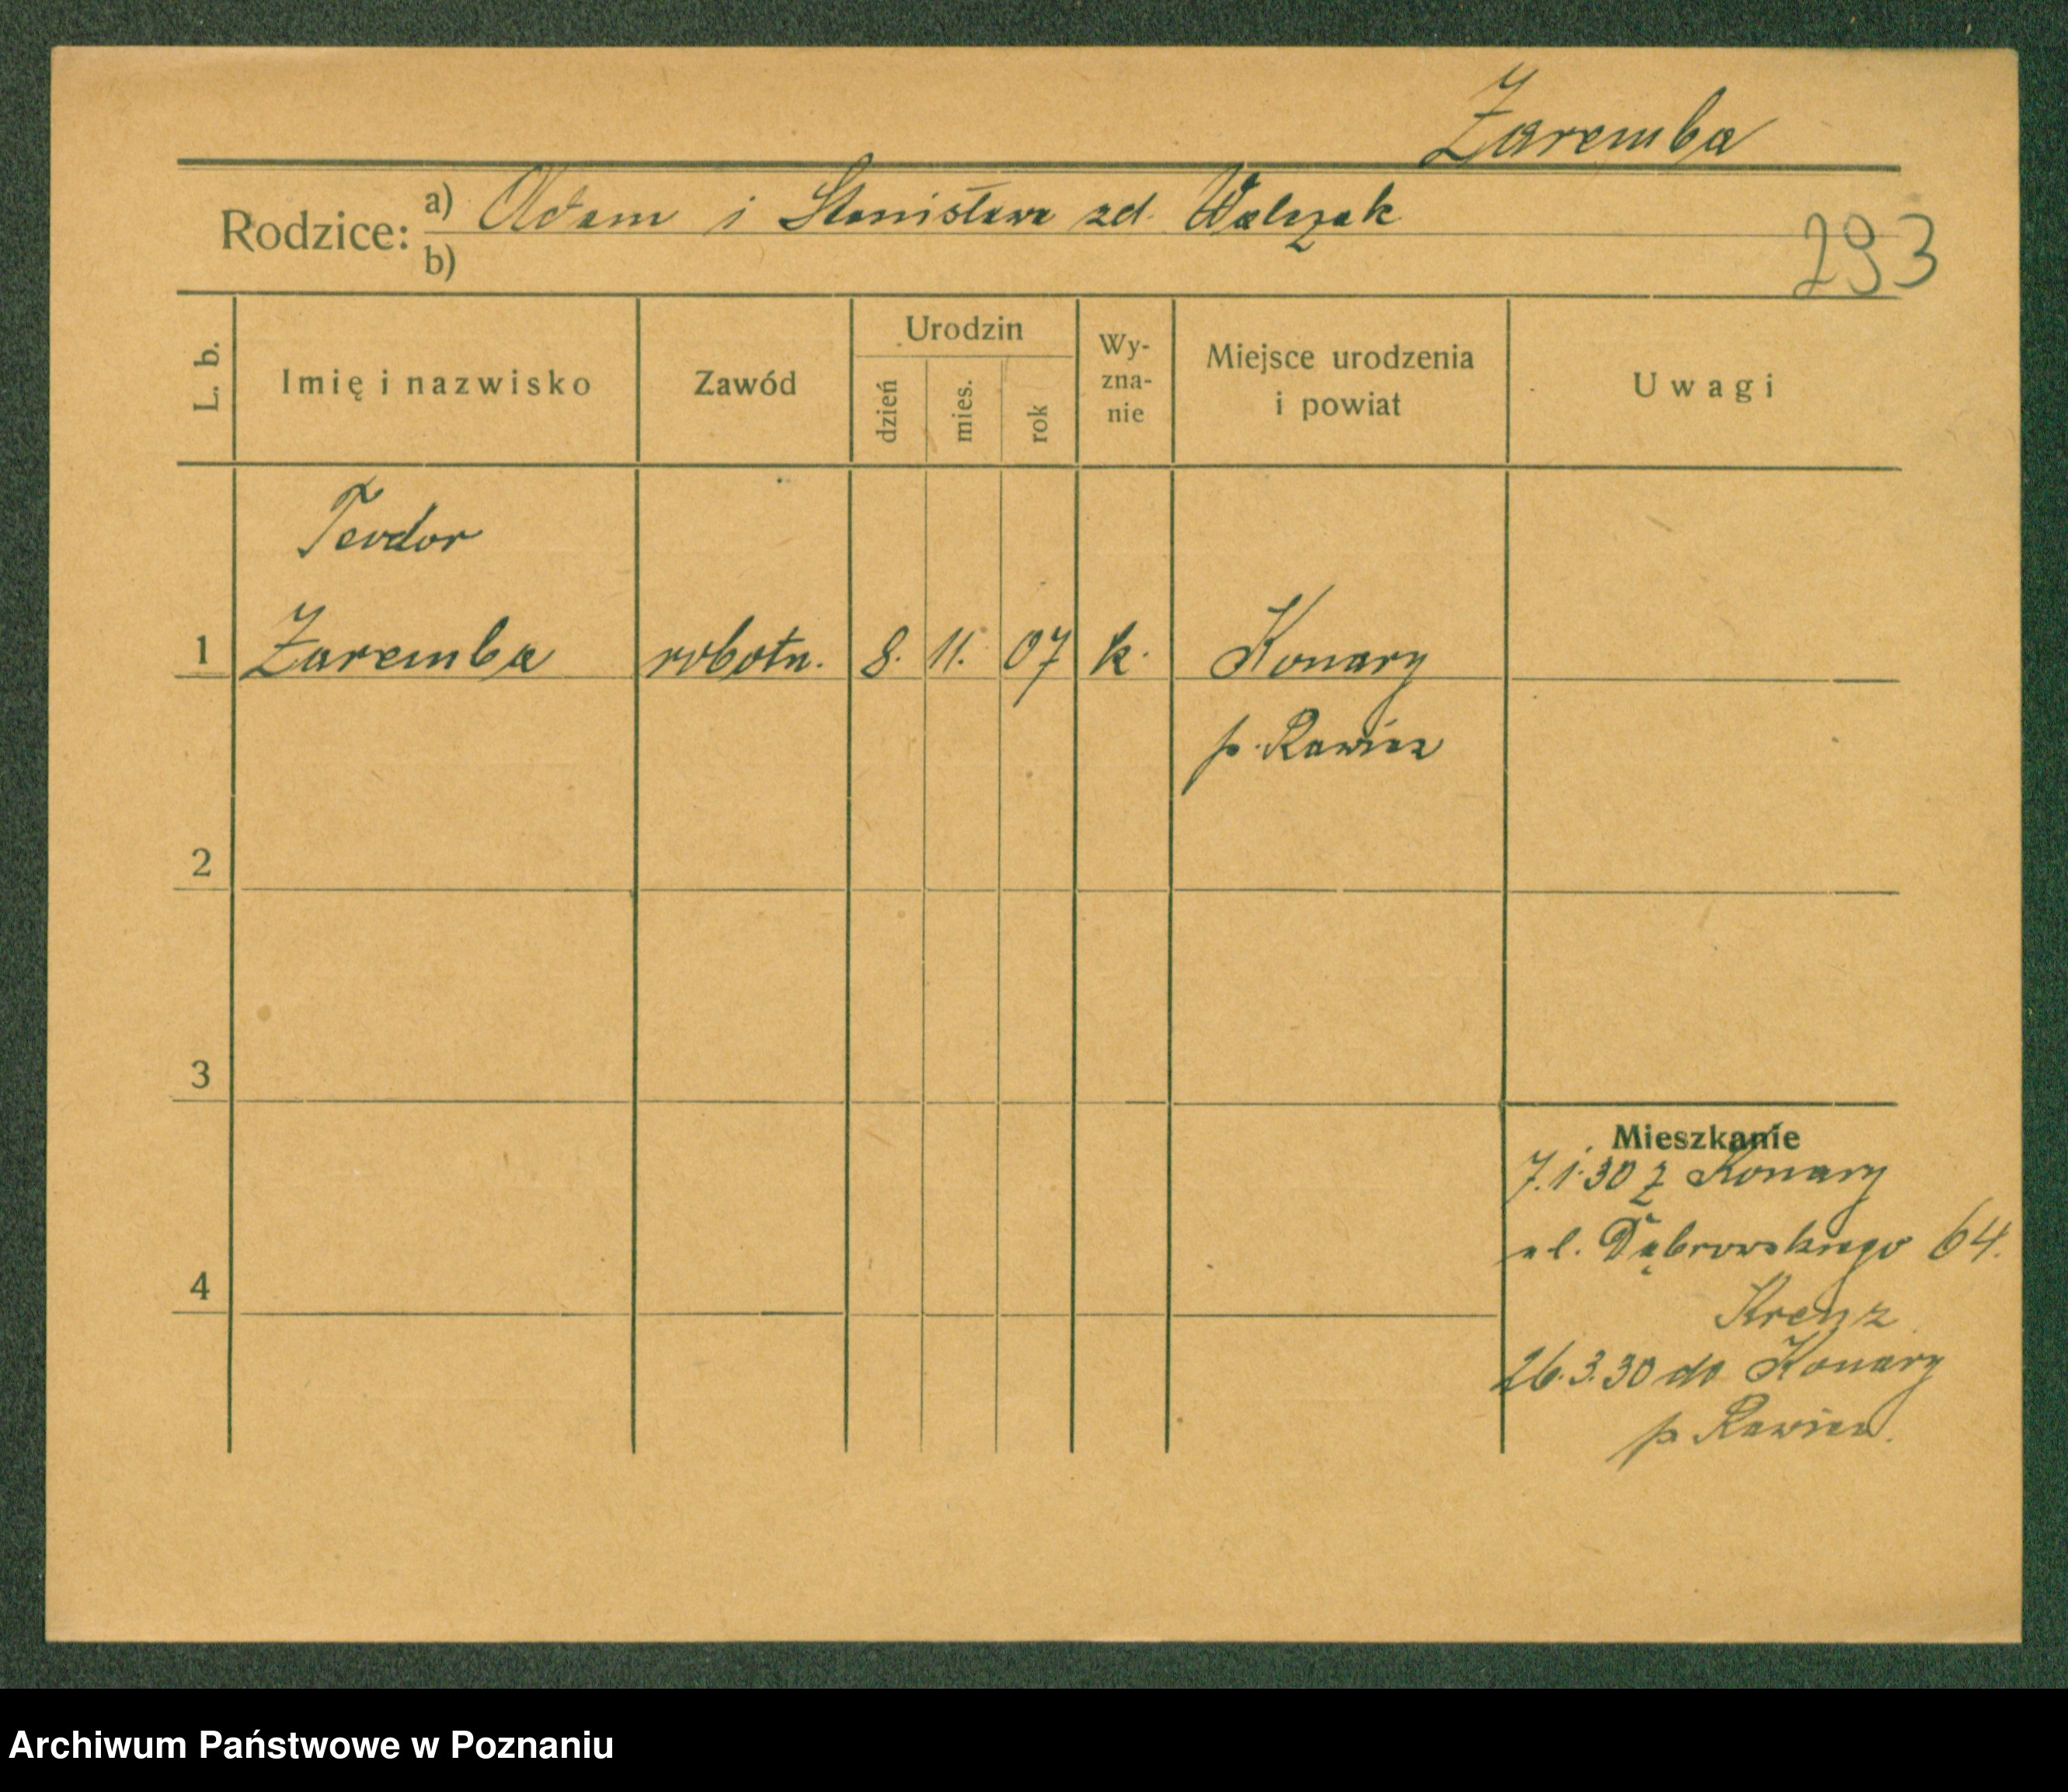 Zaremba
Rodzice: a) Adam i Stanisława zd. Walczak
b)
293
L. b. Imię i nazwisko Zawód Urodzin dzień mies. rok Wy- zna- nie Miejsce urodzenia i powiat Uwagi
Teodor
1 Zaremba robotn. 8. 11. 07 k. Konary
p. Rawicz
2
3
Mieszkanie
7.1.30 z Konary
ul. Dąbrowskiego 64.
4
Krenz
26.3.30 do Konary
p. Rawicz.
Archiwum Państwowe w Poznaniu